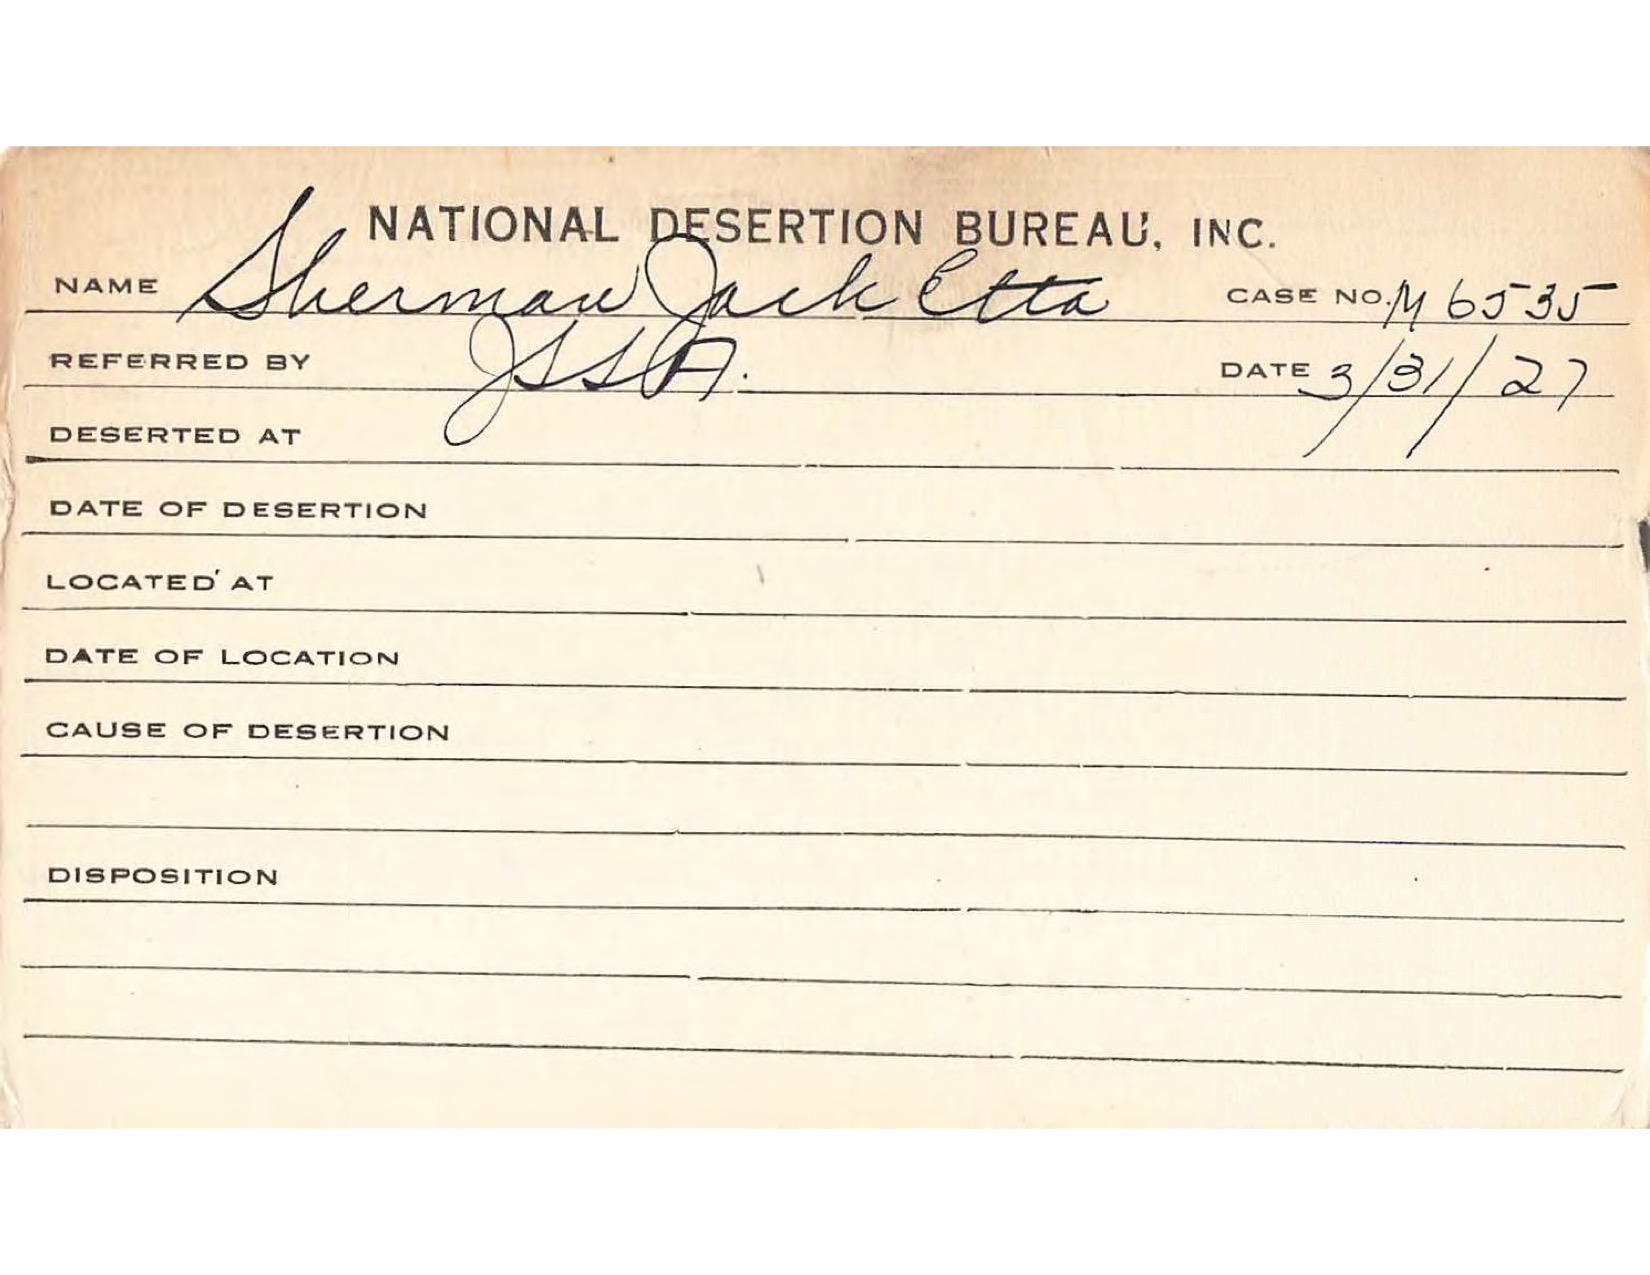 NATIONAL DESERTION BUREAU, INC.
NAME Sherman Jack Etta CASE NO. M 6535
REFERRED BY JSSA. DATE 3/31/27
DESERTED AT
DATE OF DESERTION
LOCATED AT
DATE OF LOCATION
CAUSE OF DESERTION
DISPOSITION